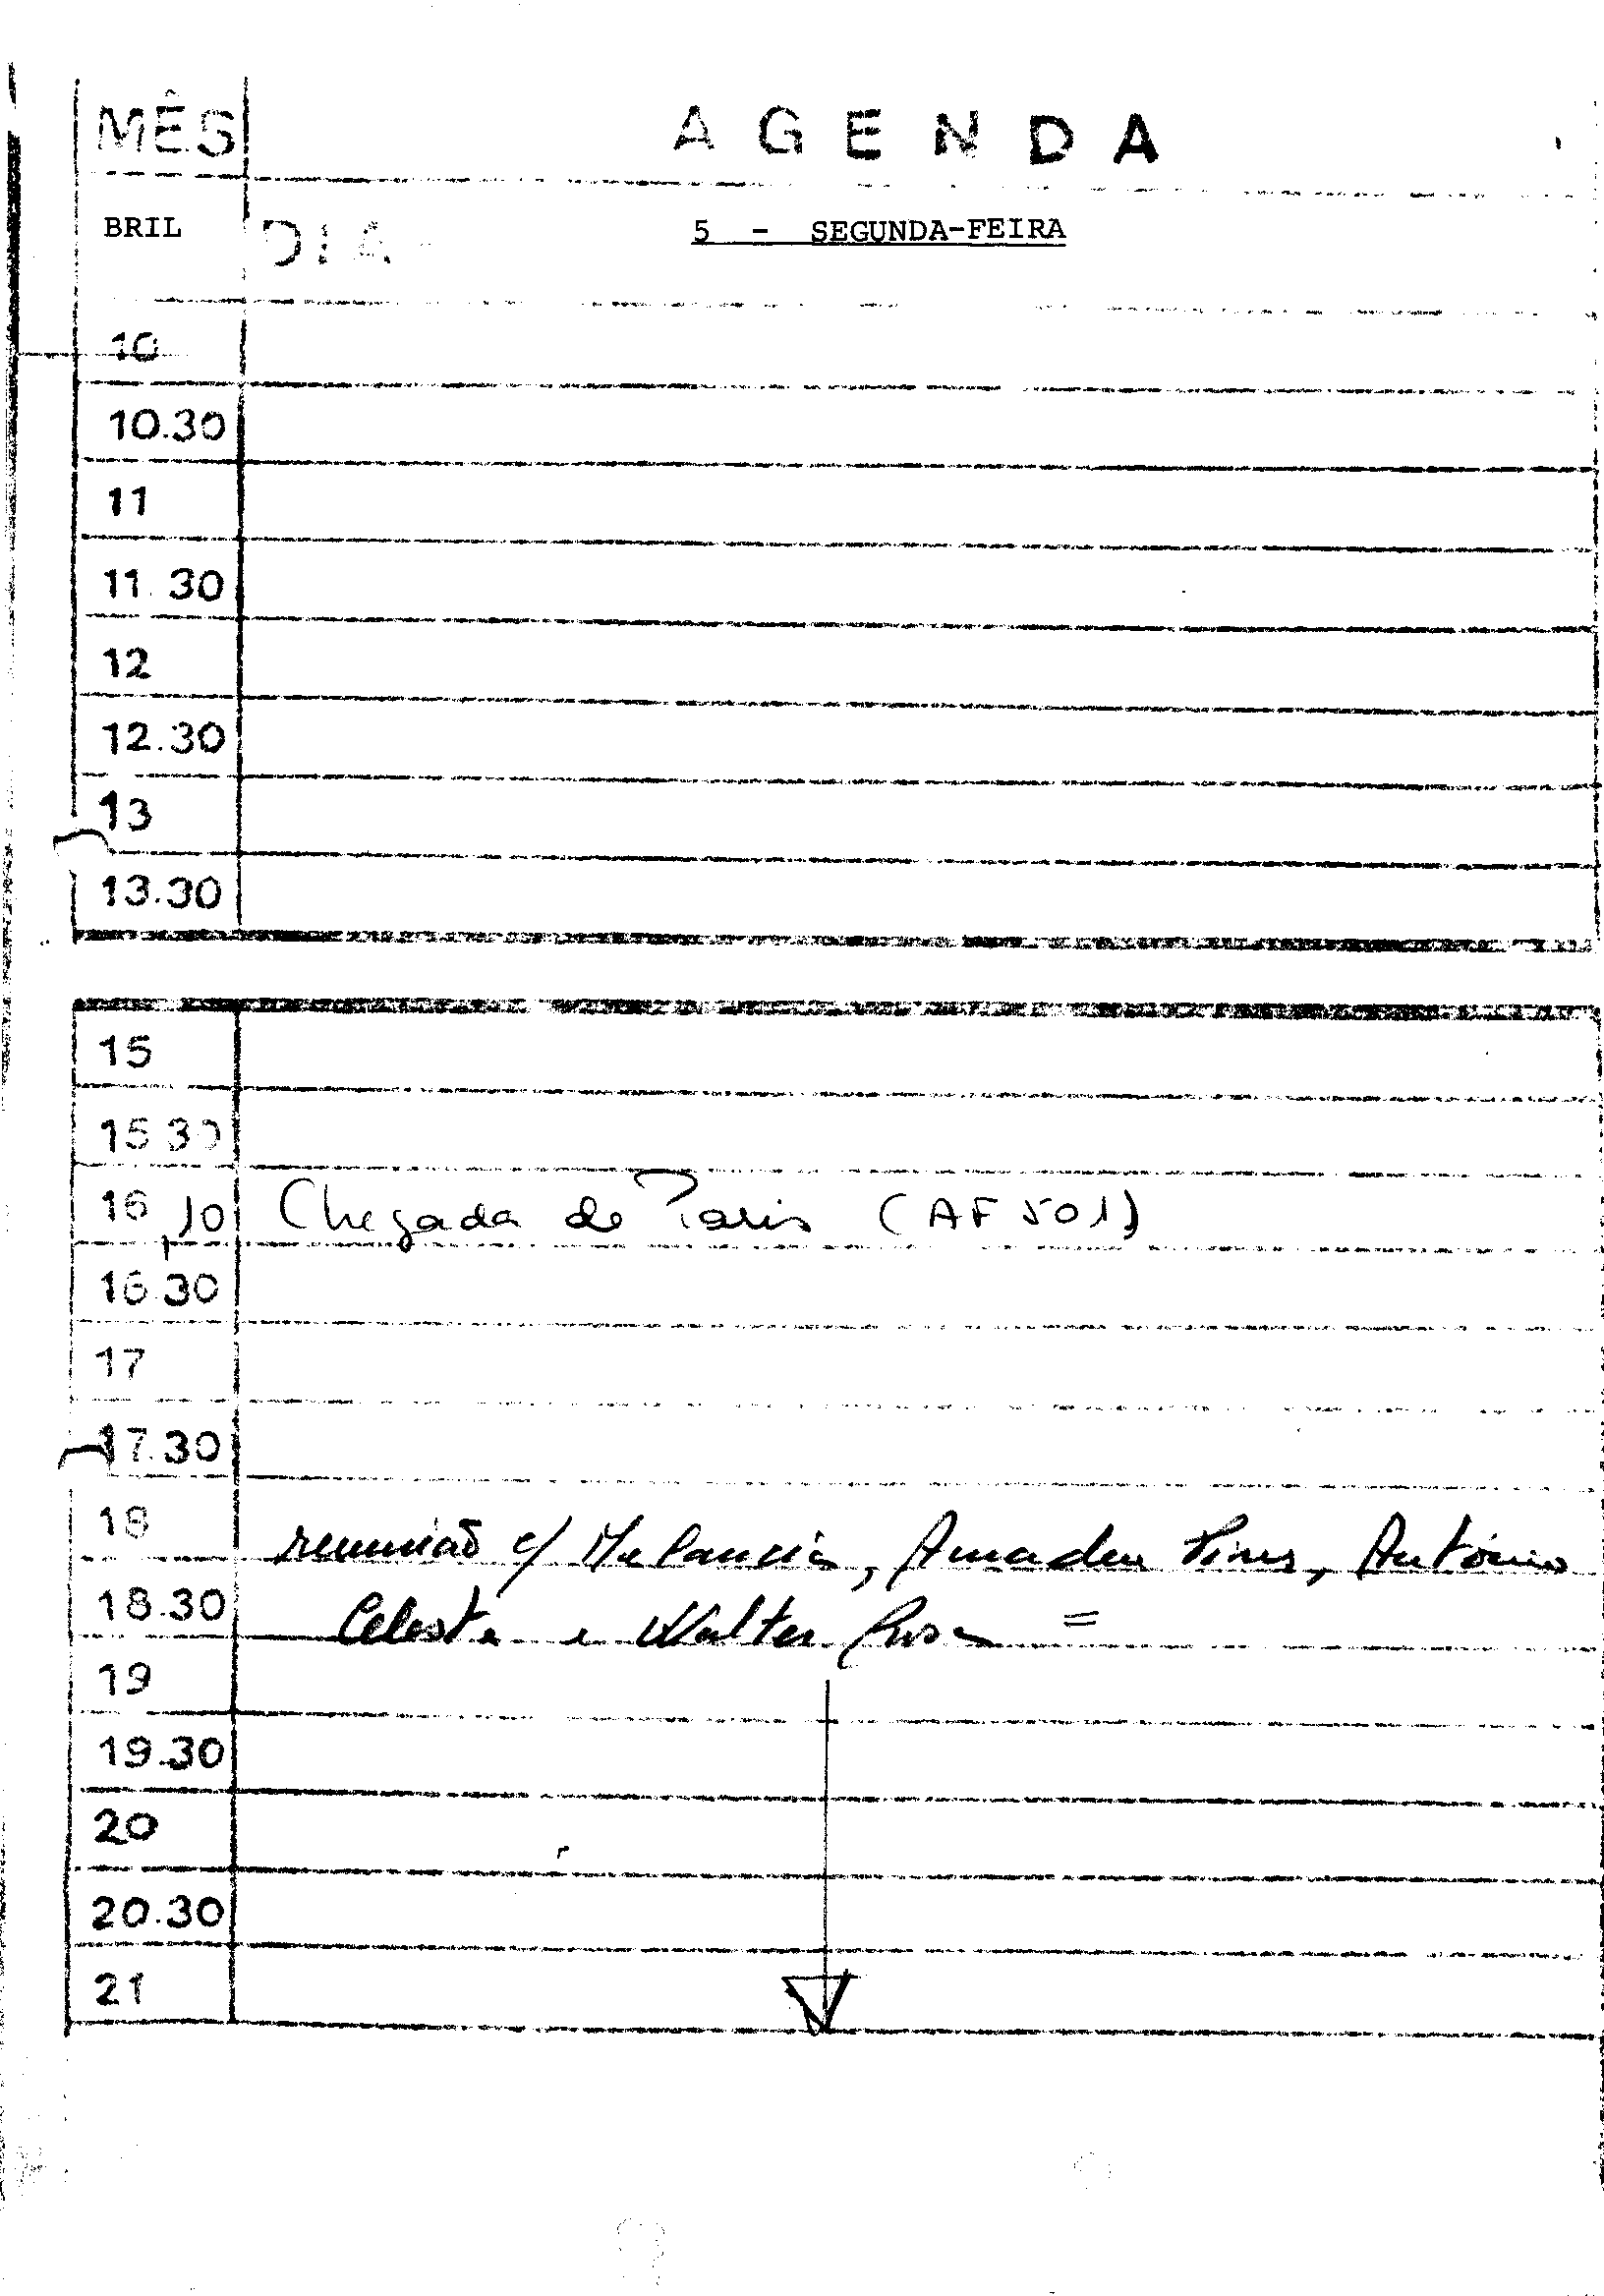 MÊS AGENDA
BRIL DIA 5 - SEGUNDA-FEIRA
10
10.30
11
11.30
12
12.30
13
13.30
15
15 30
16 10 Chegada de Paris (AF 501)
16.30
17
17.30
18 reunião c/ Melancia, Amadeu Pires, António
18.30 Celeste e Walter Rosa =
19
19.30
20
20.30
21